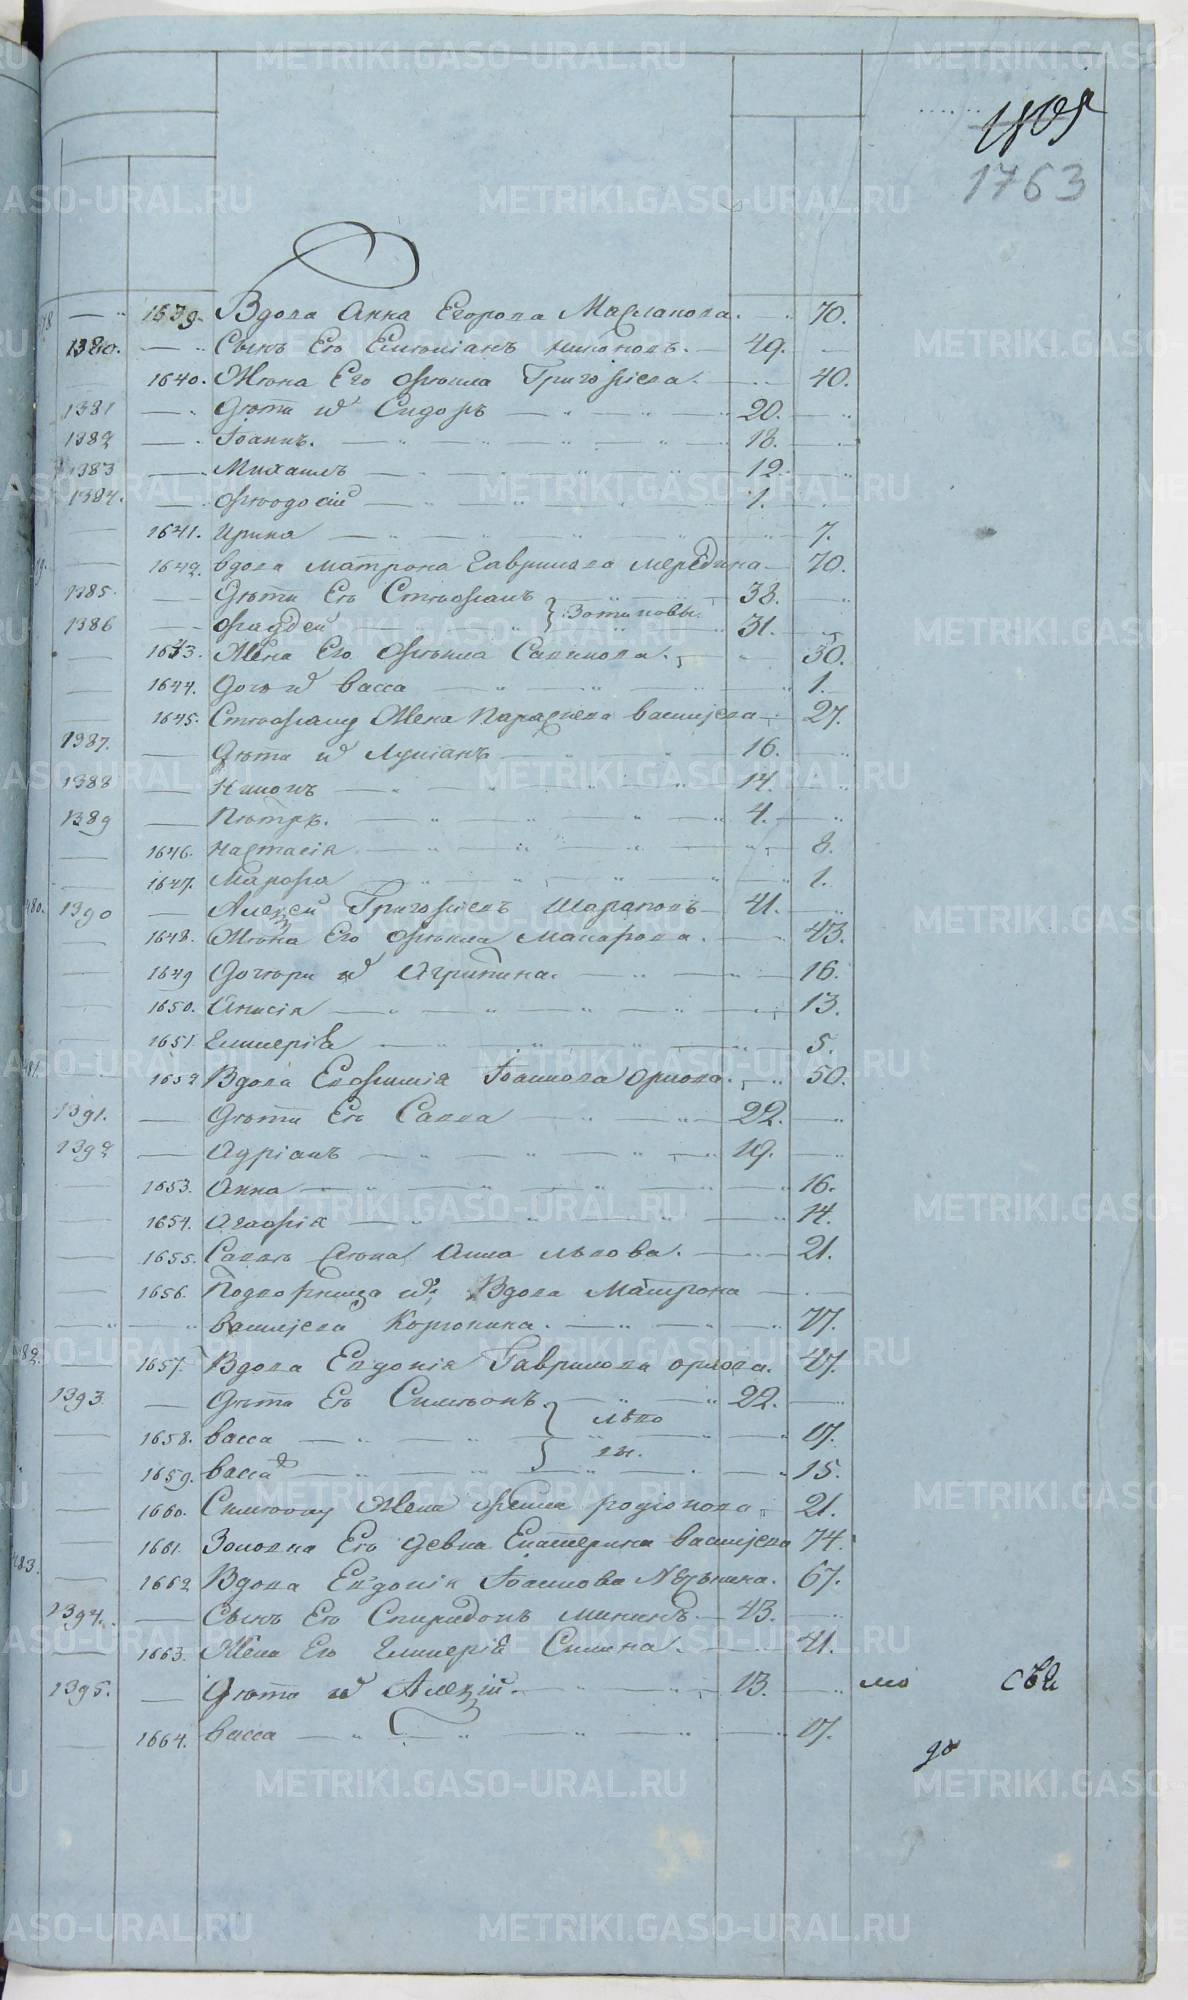 1763
1639. Вдова Анна Егорова Масланова. 70.
1380. Сынъ Ея Емелiанъ Никоновъ. 49.
1640. Жена Его Фекла Григорiева. 40.
1381 Дѣти их Сидоръ 20.
1382 Iоаннъ. 18.
1383 Михаилъ 12.
1384. Феодосiй 1.
1641. Ирина 7.
1642. вдова Матрона Гаврилова 70.
1385. Дѣти Ея Стефанъ 38.
Зотиковы
1386 Фаддей 31.
1643. Жена Его Фекла Савинова. 30.
1644. Дочь их Васса 1.
1645. Стефану Жена Параскева Васильева 27.
1387. Дѣти их Лукiанъ 16.
1388 Никонъ 14.
1389 Петръ. 4.
1646. Настасiя 8.
1647. Марфа 1.
480. 1390 Алексей Григорiевъ Шараповъ 41.
1648. Жена Его Фекла Макарова. 43.
1649 Дочери их Агрипина. 16.
1650. Анисiя 13.
1651 Гликерiя 5.
481. 1652 Вдова Евфимiя Iоаннова Орлова. 50.
1391. Дѣти Ея Савва 22.
1392 Адрiанъ 19.
1653. Анна 16.
1654. Агафiя 14.
1655. Саввы Жена Анна Львова. 21.
1656. Подворница их Вдова Матрона
Васильева Корюкина. 77.
482. 1657. Вдова Евдокiя Гаврилова Орлова. 47.
1393 Дѣти Ея Симеонъ 22.
Льво
1658. Васса 17.
вы.
1659. Васса 15.
1660. Симеону Жена Фекла Родiонова 21.
1661. Золовка Его девка Екатерина Васильева 74.
483. 1662 Вдова Евдокiя Iоаннова 67.
1394. Сынъ Ея Спиридонъ Микинъ. 43.
1663. Жена Его Гликерiя Силина. 41.
1395. Дѣти их Алексiй. 13.
1664. Васса 17.